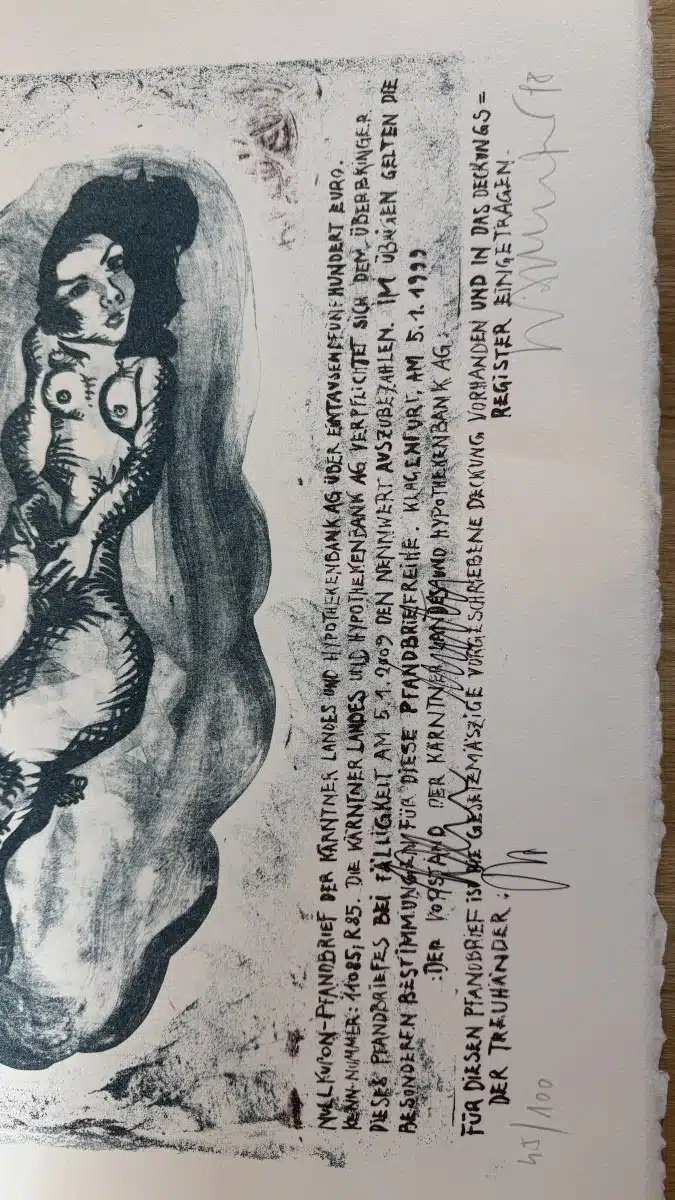 NULLKUPON-PFANDBRIEF DER KÄRNTNER LANDES UND HYPOTHEKENBANK AG ÜBER EINTAUSENDFÜNFHUNDERT EURO.
KENN-NUMMER: 11085; R85. DIE KÄRNTNER LANDES UND HYPOTHEKENBANK AG VERPFLICHTET SICH DEM ÜBERBRINGER
DIESES PFANDBRIEFES BEI FÄLLIGKEIT AM 5.1.2009 DEN NENNWERT AUSZUBEZAHLEN. IM ÜBRIGEN GELTEN DIE
BESONDEREN BESTIMMUNGEN FÜR DIESE PFANDBRIEFREIHE. KLAGENFURT, AM 5.1.1999
:DER VORSTAND DER KÄRNTNER LANDES UND HYPOTHEKENBANK AG.
FÜR DIESEN PFANDBRIEF IST DIE GESETZMÄSZIGE VORGESCHRIEBENE DECKUNG VORHANDEN UND IN DAS DECKUNGS=
REGISTER EINGETRAGEN.
DER TREUHÄNDER:
45/100
98